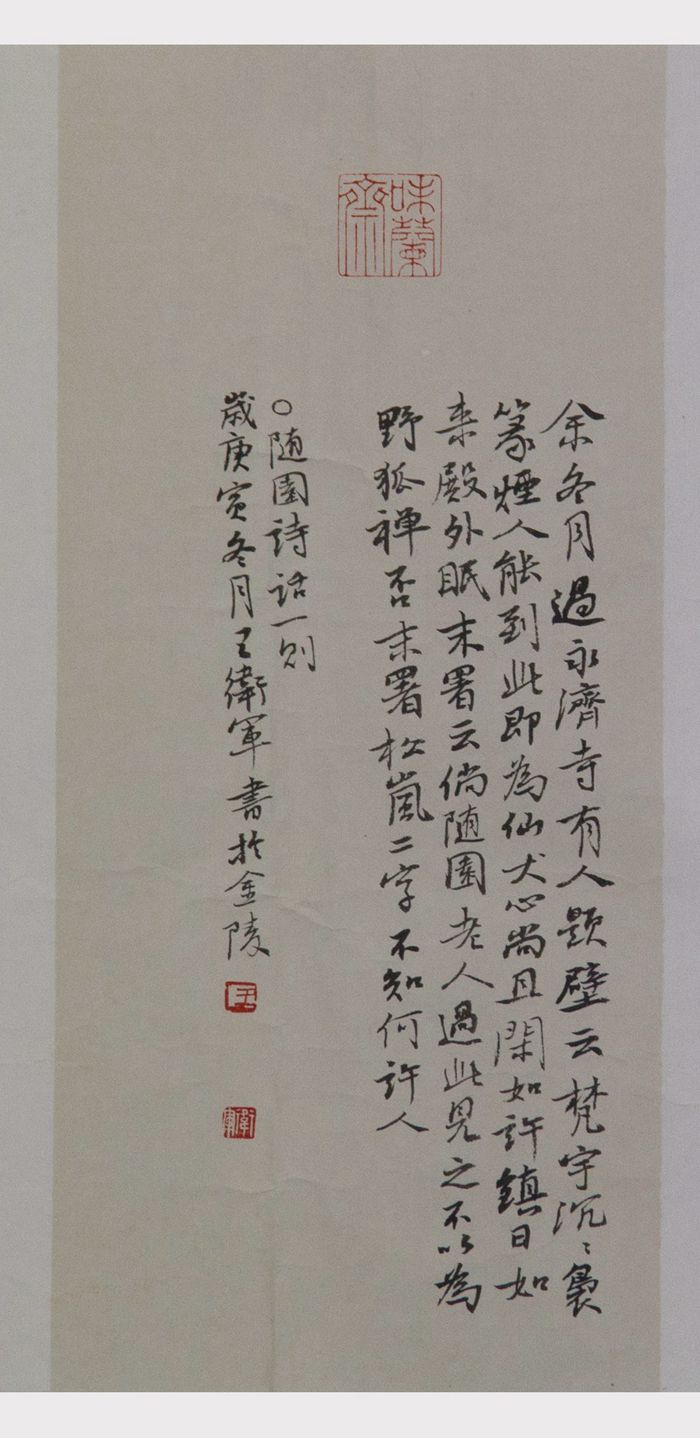 味蘭齋
余冬月過永濟寺有人題壁云梵宇沉〻裊
篆煙人能到此即為仙犬心尚且閑如許鎮日如
来殿外眠末署云倘随園老人過此見之不以為
野狐禅否末署松嵐二字不知何許人
〇随園詩話一则
歲庚寅冬月王衛軍書於金陵
王
衛軍